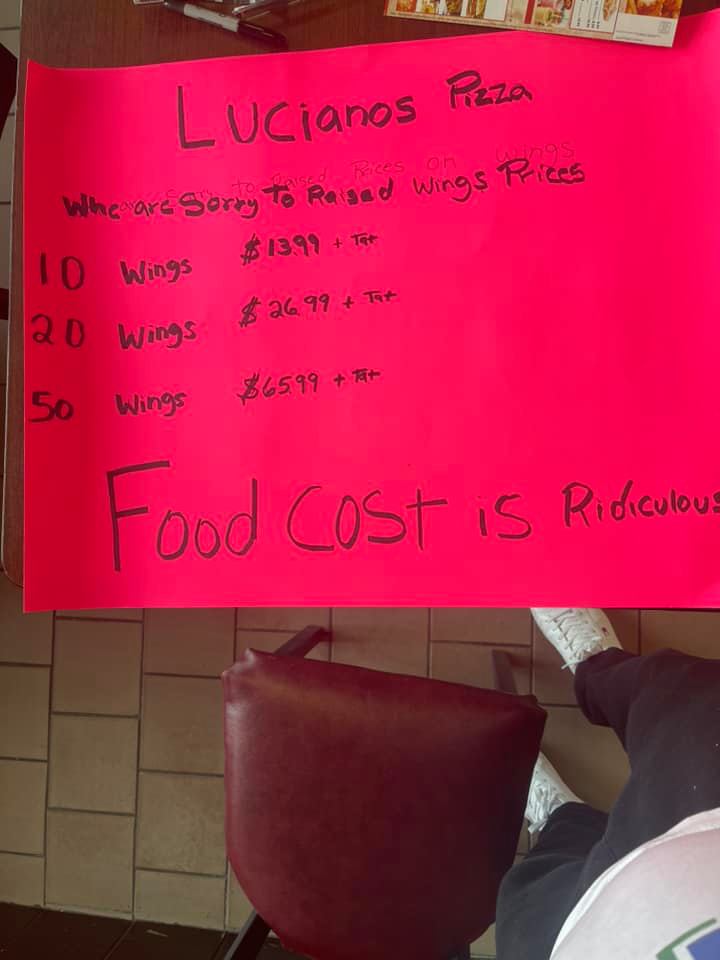 Lucianos Pizza
are Sorry to Raised Prices on wings
Whe are Sorry To Raised Wings Prices
10 Wings $13.99 + Tat
20 Wings $26.99 + Tat
50 Wings $65.99 + Tat
Food Cost is Ridiculous